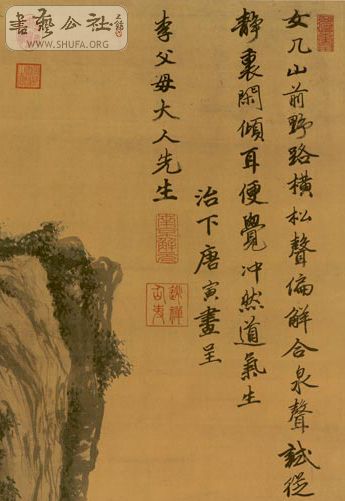 書藝公社
WWW.SHUFA.ORG
女几山前野路橫松聲偏解合泉聲試從
靜裏閑傾耳便覺冲然道氣生
治下唐寅畫呈
李父母大人先生